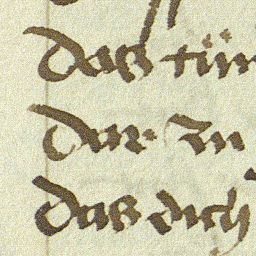 das tün
dar zu
das dich